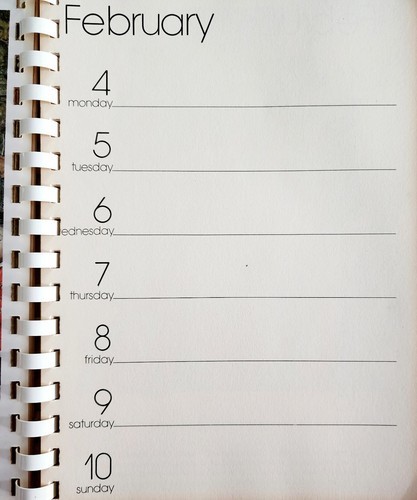 February
4
monday
5
tuesday
6
ednesday
7
thursday
8
friday
9
saturday
10
sunday